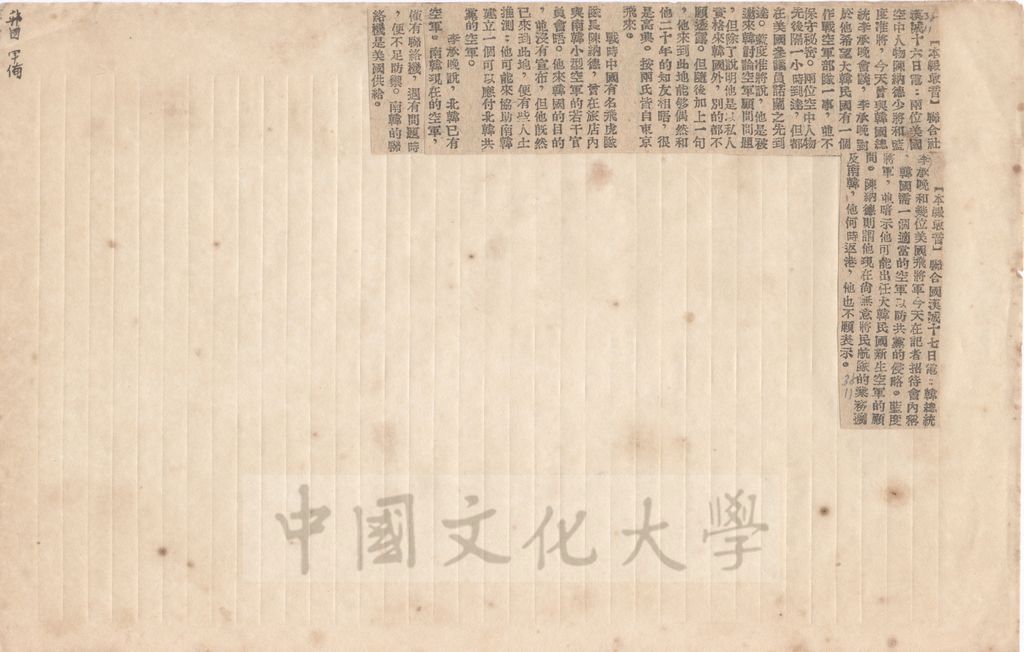 【本報收音】聯合社
漢城十六日電：兩位美國
空中人物陳納德少將和藍
度准將，今天曾與韓國總
統李承晚會議，李承晚對
於他希望大韓民國有一個
作戰空軍部隊一事，並不
保守秘密。兩位空中人物
先後隔一小時到達，但都
在美國參議員諾蘭之先到
達。藍度准將說，他是被
邀來韓討論空軍顧問問題
，但除了說明他是以私人
資格來韓國外，別的都不
願透露。但隨後加上一句
，他來到此地能够偶然和
他二十年的知友相晤，很
是高興。按兩氏皆自東京
飛來。
戰時中國有名飛虎隊
隊長陳納德，曾在旅店內
與南韓小型空軍的若干官
員會晤。他來韓國的目的
，並沒有宣布，但他既然
已來到此地，便有些人士
推測：他可能來協助南韓
建立一個可以應付北韓共
黨的空軍。
李承晚說，北韓已有
空軍。南韓現在的空軍，
僅有聯絡機，遇有問題時
，便不足防禦。南韓的聯
絡機是美國供給。
【本報收音】聯合國漢城十七日電：韓總統
李承晚和幾位美國飛將軍今天在記者招待會內稱
，韓國需一個適當的空軍以防共黨的侵略。藍度
將軍，並暗示他可能出任大韓民國新生空軍的顧
問。陳納德則謂他現在尚無意將民航隊的業務擴
及南韓，他何時返港，他也不願表示。
38
11
韓國 軍備
中國文化大學